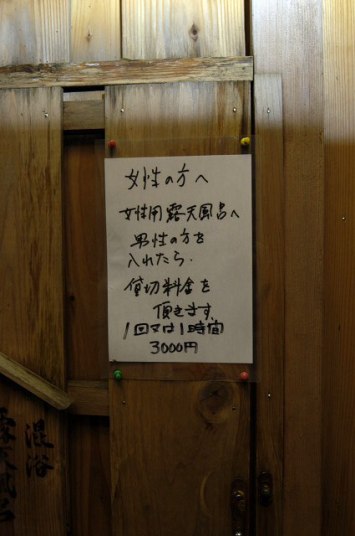 女性の方へ
女性用露天風呂へ
男性の方を
入れたら.
貸切料金を
頂きます.
1回又は1時間
3000円
混浴
露天風呂